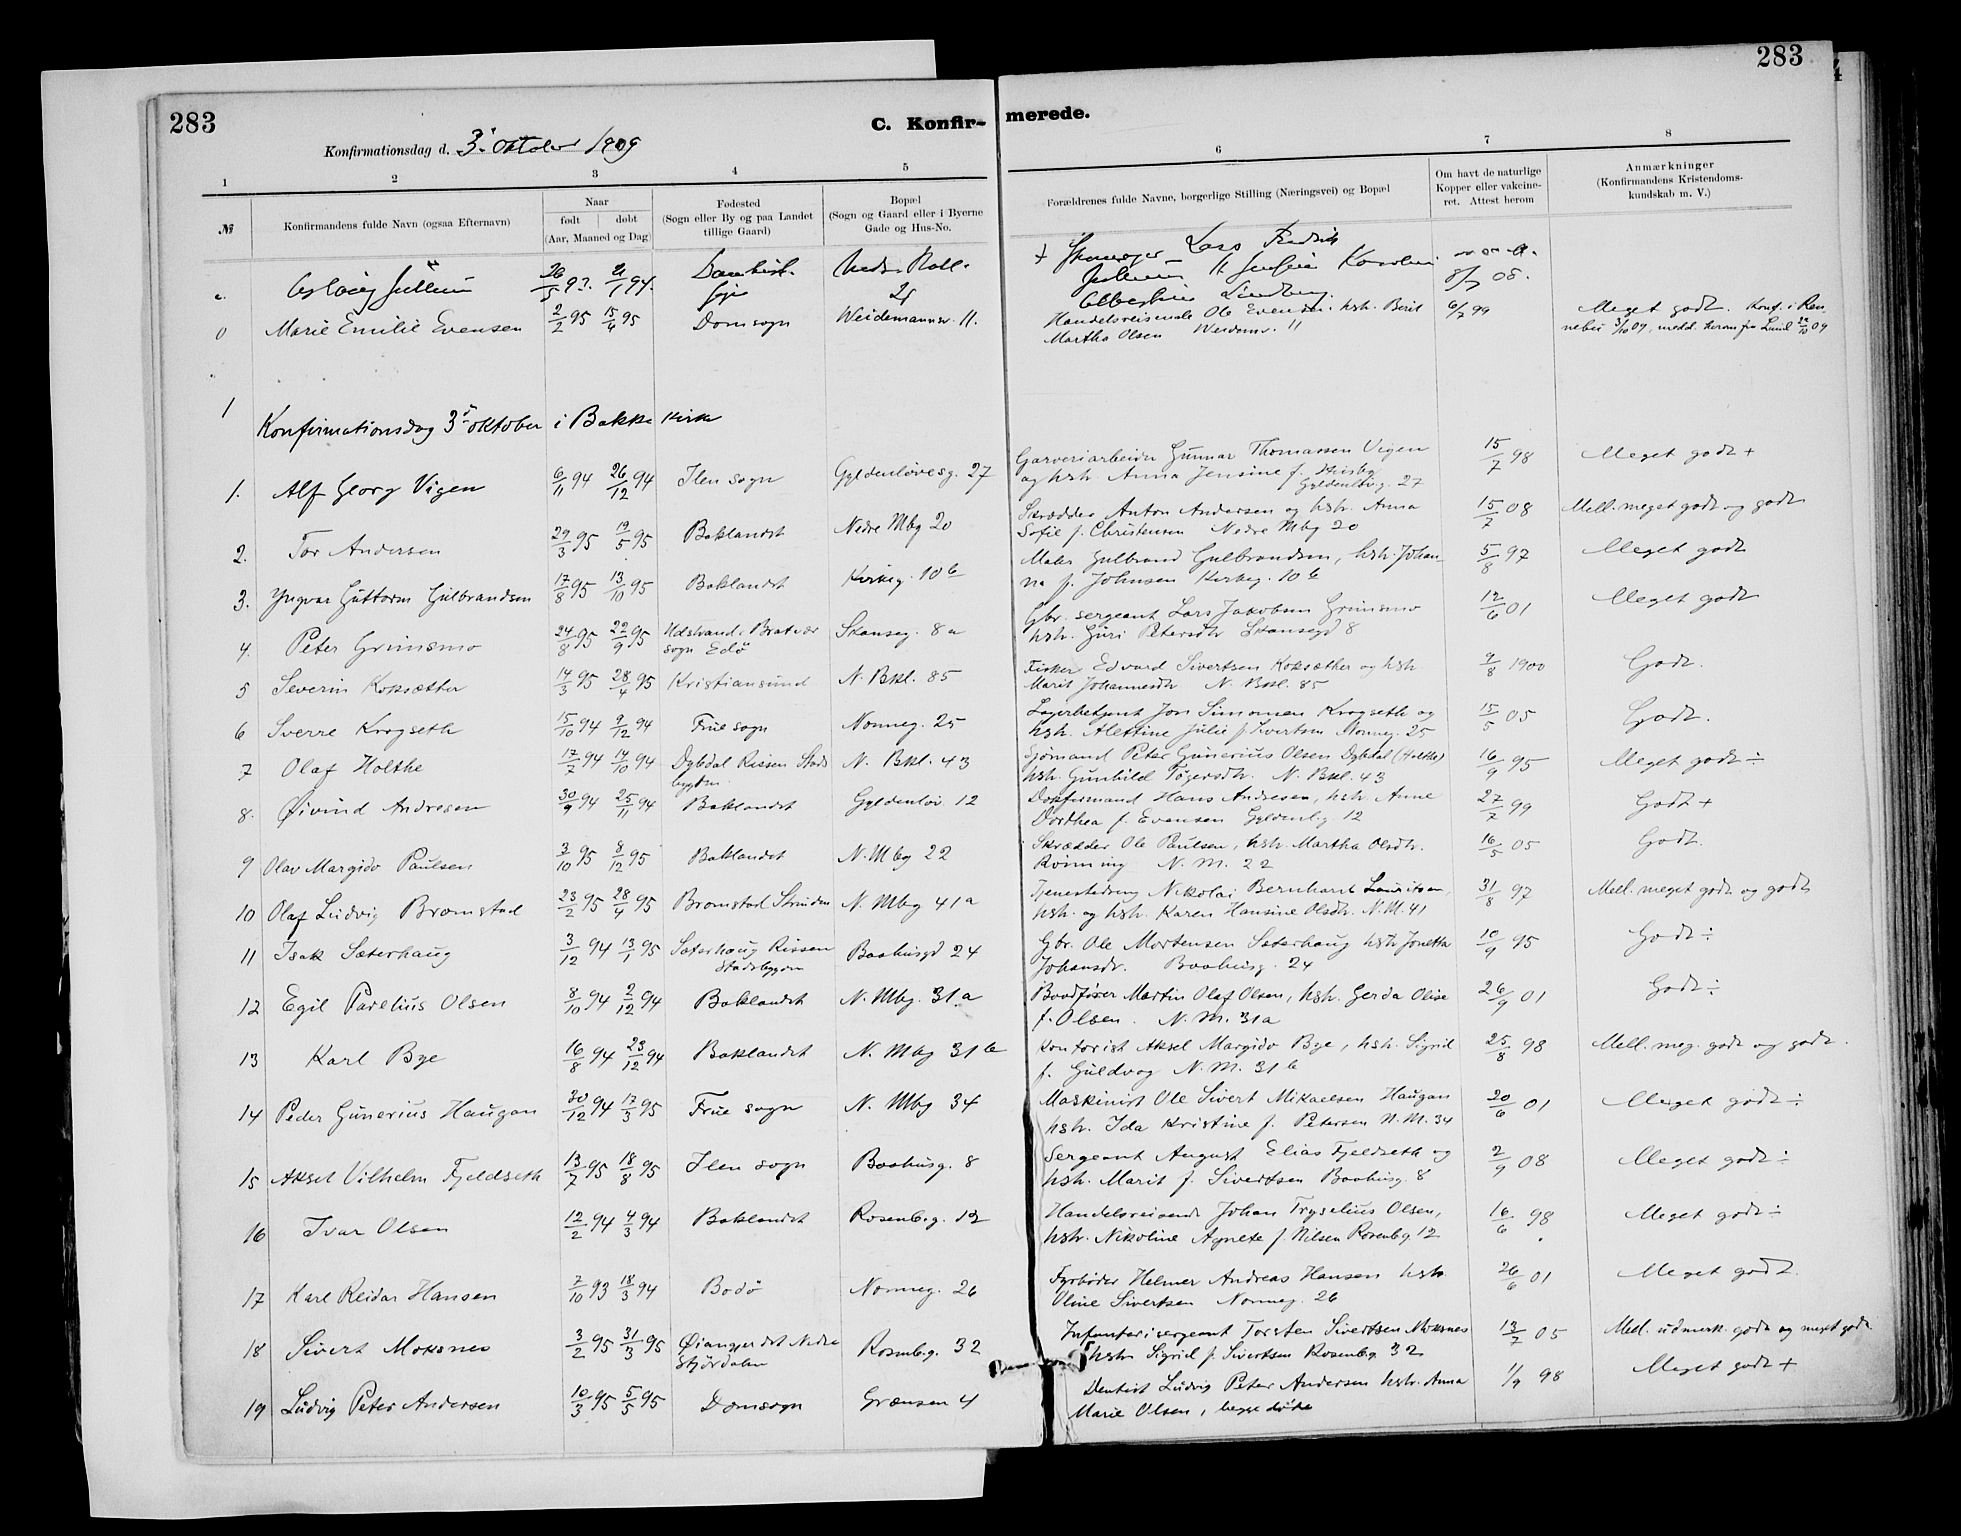 283
283
C. Konfirmerede.
Konfirmationsdag d. 3. oktober 1909
1 2 3 4 5 6 7 8
№ Konfirmandens fulde Navn (ogsaa Efternavn) Naar født døbt (Aar, Maaned og Dag) Fødested (Sogn eller By og paa Landet tillige Gaard) Bopæl (Sogn og Gaard eller i Byerne Gade og Hus-No. Forældrenes fulde Navne, borgerlige Stilling (Næringsvei) og Bopæl Om havt de naturlige Kopper eller vakcineret. Attest herom Anmærkninger (Konfirmandens Kristendomskundskab m. V.)
Lars Fredrik
Lindberg
0 Marie Emilie Evensen 2/2 95 15/4 95 Domsogn Weidemannsv. 11. Handelsreisende Ole Evensen, hstr. Berit 6/7 99 Meget godt. Konf. i Ren
Martha Olsen Weidemv. 11 nebu 3/10 09, medd. herom fra Lund 22/10 09
1
Konfirmationsdag 3. oktober i Bakke Kirke
1. Alf Georg Vigen 6/11 94 26/12 94 Ilen sogn Gyldenløvesg. 27 Garveriarbeider Gunnar Thomassen Vigen 15/7 98 Meget godt +
og hstr. Anna Jensine f. Gyldenløvg. 27
2. Tor Andersen 29/3 95 19/5 95 Baklandet Nedre Mbg 20 Skrædder Anton Andersen og hstr. Anna 15/7 08 Mell. meget godt og godt
Sofie f. Christensen Nedre Mbg 20
3. Yngvar Guttorm Gulbrandsen 17/8 95 13/10 95 Baklandet Kirkeg. 10 b Maler Gulbrand Gulbrandsen, hstr. Johan- 5/8 97 Meget godt
na f. Johnsen Kirkeg. 10 b
4. Peter Grimsmo 24/8 95 22/9 95 Brattvær sogn Edø Skanseg. 8 a Gbr. sergeant Lars Jakobsen Grimsmo 12/6 01 Meget godt
hstr. Guri Petersdtr Skansegd 8
5 Severin Koksæther 14/3 95 28/4 95 Kristiansund N. Bkl. 85 Fisker Edvard Sivertsen Koksæther og hstr. 9/8 1900 Godt.
Marit Johannesdtr N. Bkl. 85
6 Sverre Krogseth 15/10 94 9/12 94 Frue sogn Nonneg. 25 Lagerbetjent Jon Simonsen Krogseth og 15/5 05 Godt.
hstr. Alettine Julie f. Sivertsen Nonneg. 25
7 Olaf Holthe 17/7 94 14/10 94 Dybdal Rissen Stads bygden N. Bkl. 43 Sjømand Peter Gunerius Olsen Dybdal (Holthe) 16/9 95 Meget godt ÷
hstr. Gunhild Tøgersdtr. N. Bkl. 43
8. Øivind Andresen 30/9 94 25/11 94 Baklandet Gyldenløv. 12 Dokformand Hans Andresen, hstr. Anne 27/7 99 Godt +
Dorthea f. Evensen Gyldenlg. 12
9 Olav Margido Paulsen 3/10 95 8/12 95 Baklandet N. Mbg 22 Skrædder Ole Paulsen, hstr. Martha Olsdtr. 16/5 05 Godt.
Rønning N. M. 22
10 Olaf Ludvig Bromstad 23/2 95 28/4 95 Bromstad Strinden N. Mbg 41 a Tjenestedreng Nikolai Bernhard Lauritsen, 31/8 97 Mell. meget godt og godt
hstr. og hstr. Karen Hansine Olsdtr. N. M. 41
11 Isak Sæterhaug 3/12 94 13/1 95 Sæterhaug Rissen Stadsbygden Baahusgd 24 Gbr. Ole Mortensen Sæterhaug hstr. Jonetta 10/9 95 Godt ÷
Johansdr. Baahusg. 24
12 Egil Parelius Olsen 8/10 94 2/12 94 Baklandet N. Mbg. 31 a Baadfører Martin Olaf Olsen, hstr. Gerda Olise 26/9 01 Godt ÷
f. Olsen. N. M. 31 a
13 Karl Bye 16/8 94 23/12 94 Baklandet N. Mbg 31 b Kontorist Aksel Margido Bye, hstr. Sigrid 25/8 98 Mell. meg. godt og godt.
f. Guldvog N. M. 31 b
14 Peder Gunerius Haugan 30/12 94 17/3 95 Frue sogn N. Mbg 34 Maskinist Ole Sivert Mikaelsen Haugan 20/6 01 Meget godt ÷
hstr. Ida Kristine f. Petersen N. M. 34
15 Aksel Vilhelm Fjeldseth 13/7 95 18/8 95 Ilen sogn Baahusg. 8 Sergeant August Elias Fjeldseth og 2/9 08 Meget godt ÷
hstr. Marit f. Sivertsen Baahusg. 8
16 Ivar Olsen 12/2 94 4/3 94 Baklandet Rosenb.g. 12 Handelsreisende Johan Trygelius Olsen, 16/6 98 Meget godt ÷
hstr. Nikoline Agnete f. Nilsen Rosenbg. 12
17 Karl Reidar Hansen 7/10 93 18/3 94 Bodø Nonneg. 26 Fyrbøder Helmer Andreas Hansen hstr. 26/6 01 Meget godt.
Oline Sivertsen Nonneg. 26
18 Sivert Moksnes 3/2 95 31/3 95 Øiangjerdet Nedre Stjørdalen Rosenb.g. 32 Infanterisergeant Torsten Sivertsen Moksnes 13/7 05 Mell. udmerk. godt og meget godt
hstr. Sigrid f. Sivertsen Rosenbg. 32
19 Ludvig Peter Andersen 10/3 95 5/5 95 Domsogn Grænsen 4 Dentist Ludvig Peter Andersen hstr. Anna 1/9 98 Meget godt +
Marie Olsen, begge døde